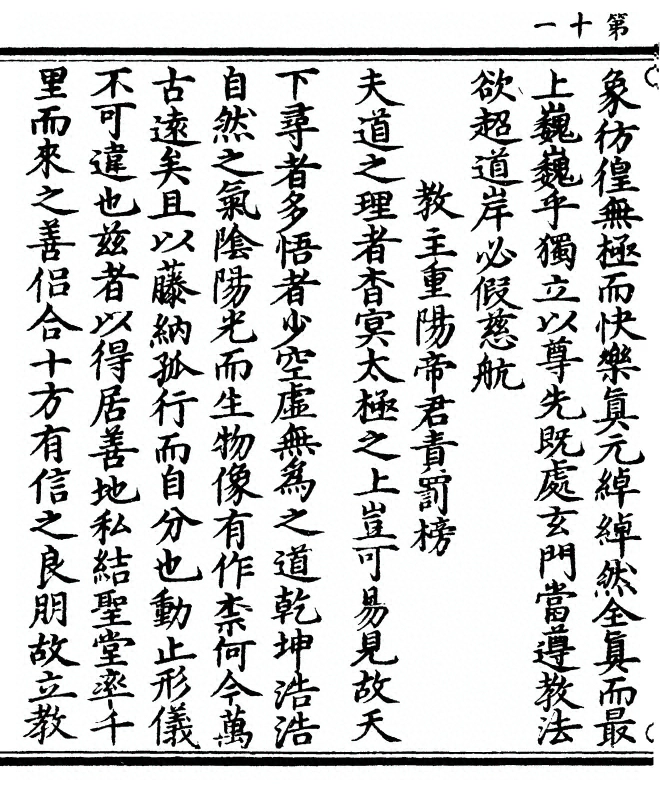 第十一
象彷徨無極而快樂眞元綽綽然全眞而最
上巍巍乎獨立以尊先既處玄門當遵教法
欲超道岸必假慈航
教主重陽帝君責罰榜
夫道之理者杳冥太極之上豈可易見故天
下尋者多悟者少空虛無爲之道乾坤浩浩
自然之氣陰陽光而生物像有作柰何今萬
古遠矣且以藤納孤行而自分也動止形儀
不可違也兹者以得居善地私結聖堂率千
里而來之善侶合十方有信之良朋故立教